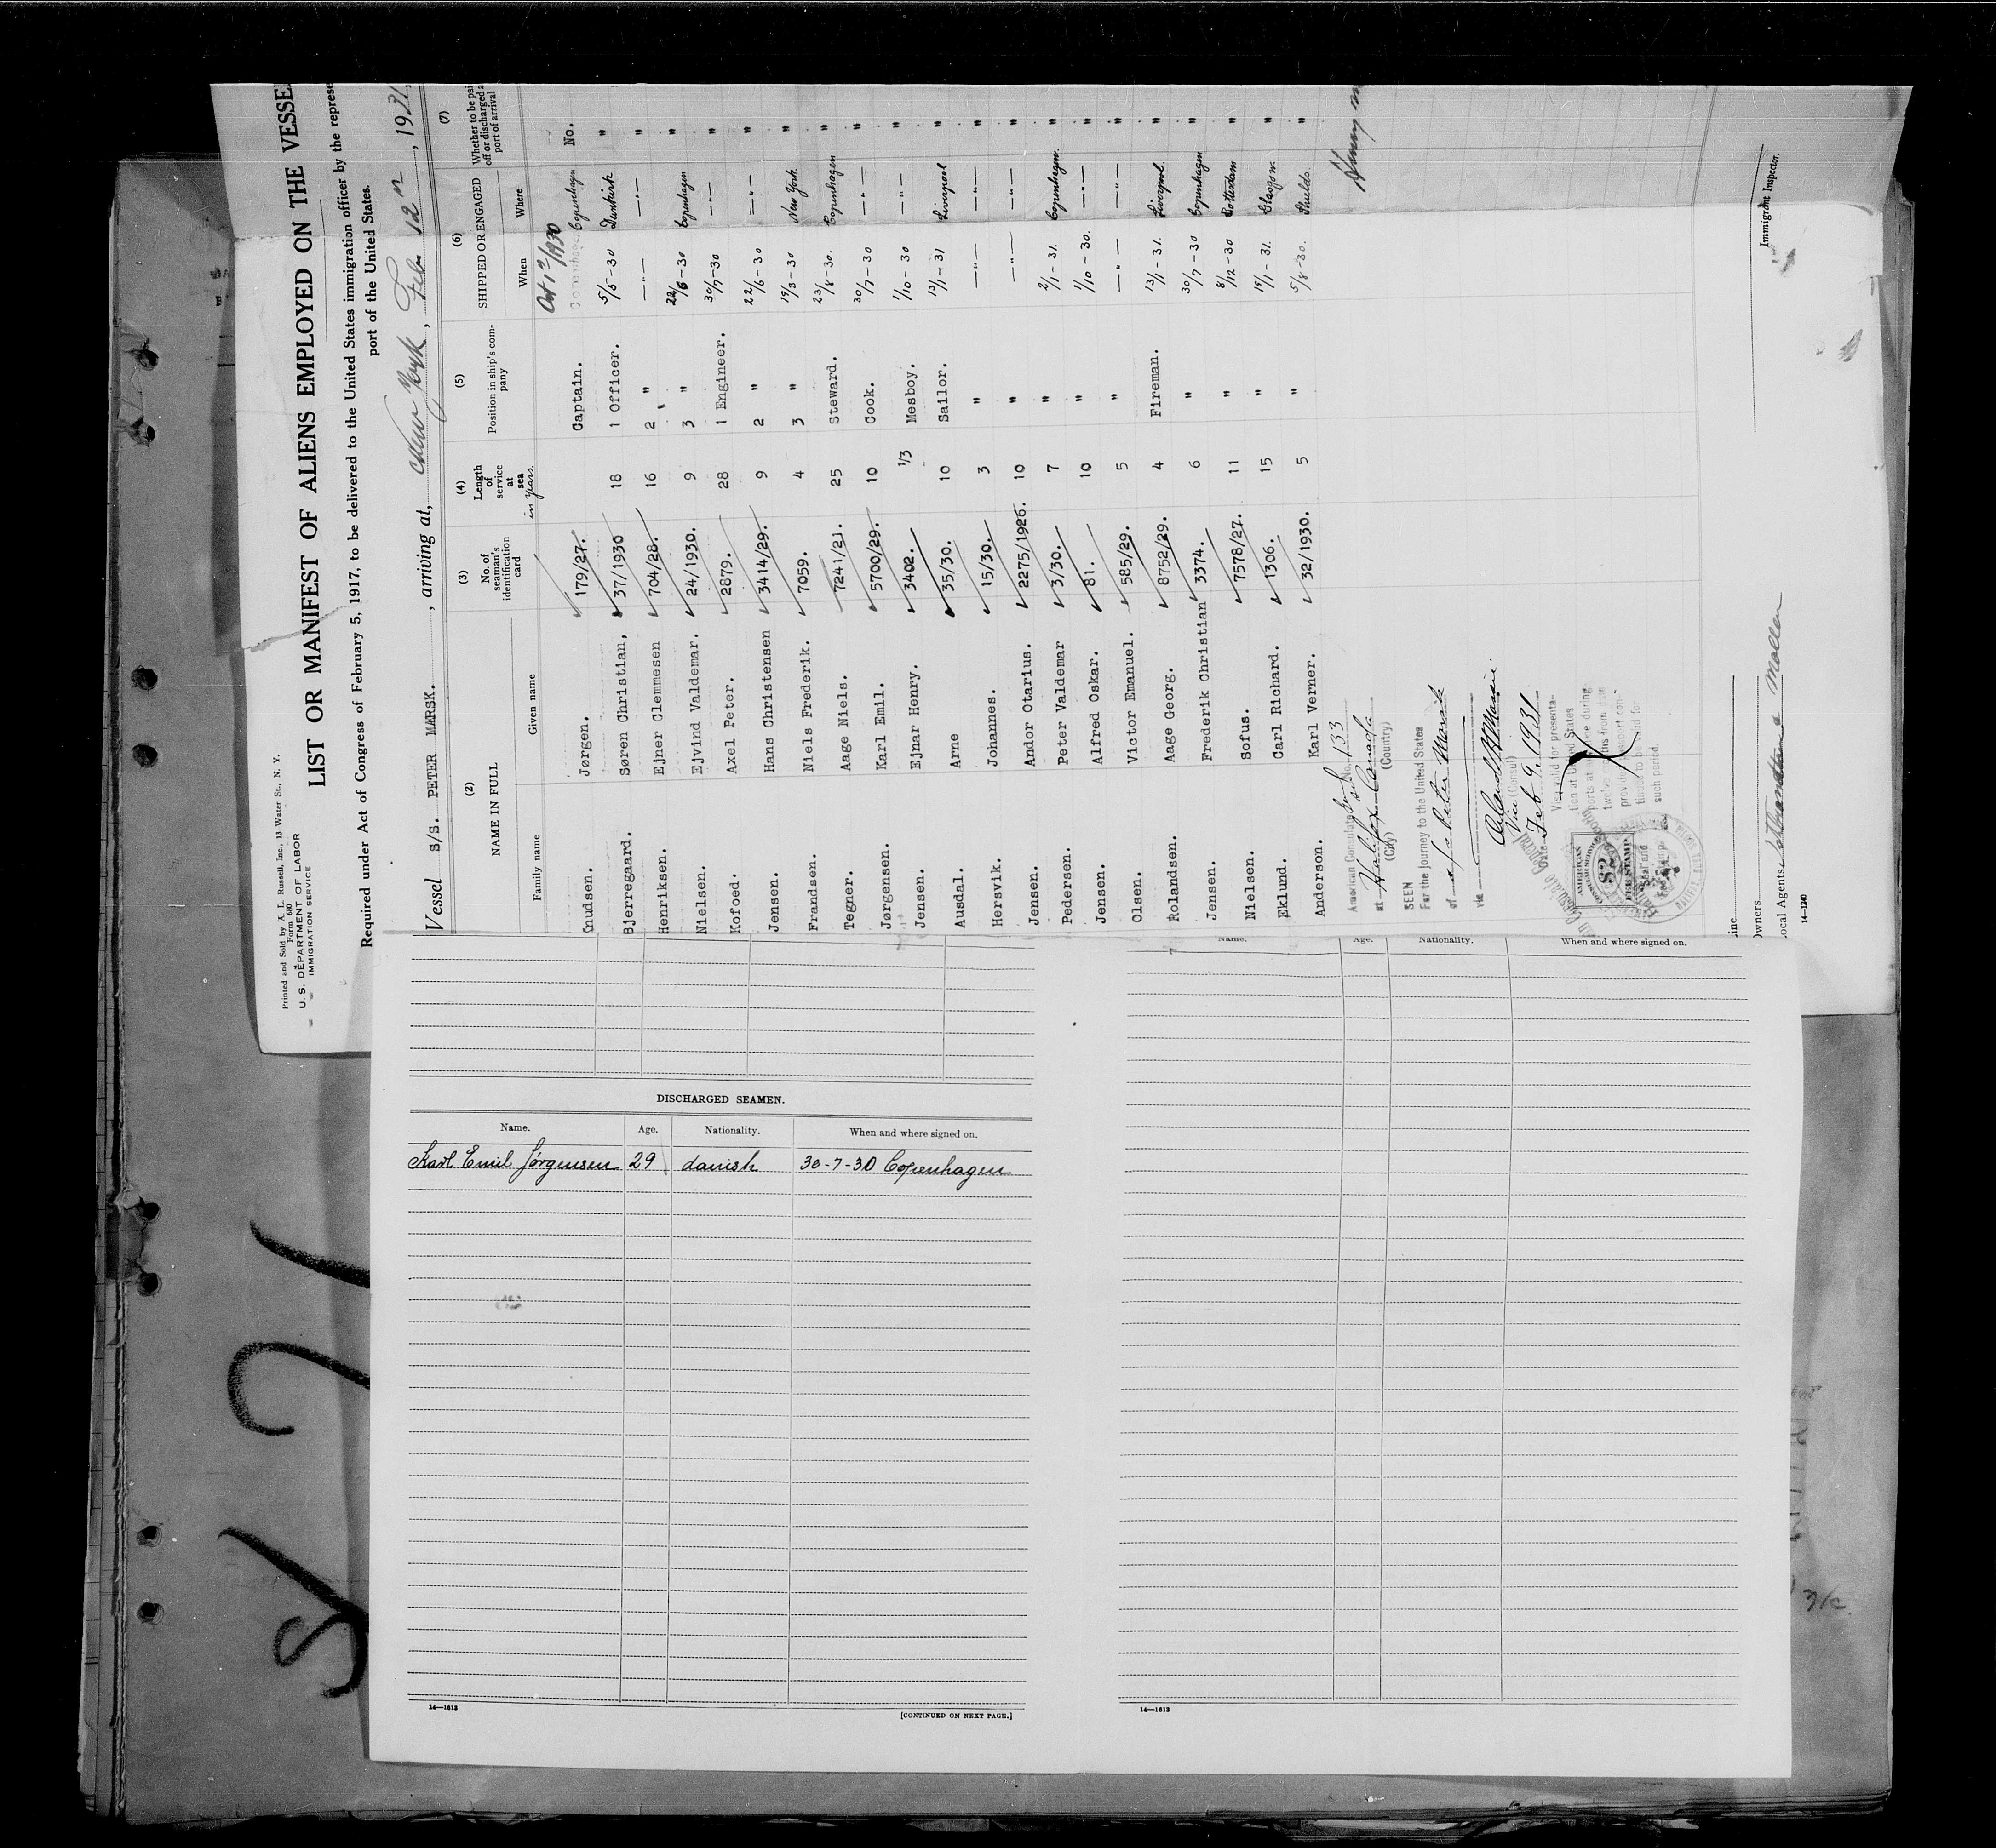 Printed and Sold by A. L. Russell, Inc., 13 Water St., N. Y.
Form 680
U. S. DEPARTMENT OF LABOR
IMMIGRATION SERVICE
LIST OR MANIFEST OF ALIENS EMPLOYED ON THE VESSE
Required under Act of Congress of February 5, 1917, to be delivered to the United States immigration officer by the represe
port of the United States.
Vessel s/s. PETER MÆRSK. , arriving at, New York, Feb 12th, 1931.
(2) (3) (4) (5) (6) (7)
NAME IN FULL No. of seaman's identification card Length of service at sea in years Position in ship's company SHIPPED OR ENGAGED Whether to be pai off or discharged a port of arrival
Family name Given name When Where
Oct 1st/1930
Cnudsen. Jørgen. 179/27. Captain. Copenhagen No.
Bjerregaard. Søren Christian, 37/1930 18 1 Officer. 5/5-30 Dunkirk "
Henriksen. Ejner Clemmesen 704/28. 16 2 " —"— —"— "
Nielsen. Ejvind Valdemar. 24/1930. 9 3 " 22/6-30 Copenhagen "
Kofoed. Axel Peter. 2879. 28 1 Engineer. 30/7-30 —"— "
Jensen. Hans Christensen 3414/29. 9 2 " 22/6-30 —"— "
Frandsen. Niels Frederik. 7059. 4 3 " 19/3-30 New York. "
Tegner. Aage Niels. 7241/21. 25 Steward. 23/8-30. Copenhagen "
Jørgensen. Karl Emil. 5700/29. 10 Cook. 30/7-30 —"— "
Jensen. Ejnar Henry. 3402. 1/3 Mesboy. 1/10-30 —"— "
Ausdal. Arne 35/30. 10 Sailor. 13/1-31 Liverpool "
Hersvik. Johannes. 15/30. 3 " —"— —"— "
Jensen. Andor Otarius. 2275/1926. 10 " —"— —"— "
Pedersen. Peter Valdemar 3/30. 7 " 2/1-31. Copenhagen. "
Jensen. Alfred Oskar. 81. 10 " 1/10-30. —"— "
Olsen. Victor Emanuel. 585/29. 5 " —"— —"— "
Rolandsen. Aage Georg. 8752/29. 4 Fireman. 13/1-31. Liverpool. "
Jensen. Frederik Christian 3374. 6 " 30/7-30 Copenhagen "
Nielsen. Sofus. 7578/27. 11 " 8/12-30 Rotterdam "
Eklund. Carl Richard. 1306. 15 " 15/1-31. Glasgow. "
Anderson. Karl Verner. 32/1930. 5 " 5/8-30. Shields. "
American Consulate No. 133
at Halifax Canada
(City) (Country)
SEEN
For the journey to the United States
of s/s Peter Maersk
via
Vice (Consul)
Date Feb 9, 1931
AMERICAN
$2
FEE STAMP
Henry
Owners
Local Agents
Immigrant Inspector.
14—1240
DISCHARGED SEAMEN.
Name. Age. Nationality. When and where signed on.
Karl Emil Jørgensen 29 danish 30-7-30 Copenhagen
14—1613
[CONTINUED ON NEXT PAGE.]
Name. Age. Nationality. When and where signed on.
14—1613